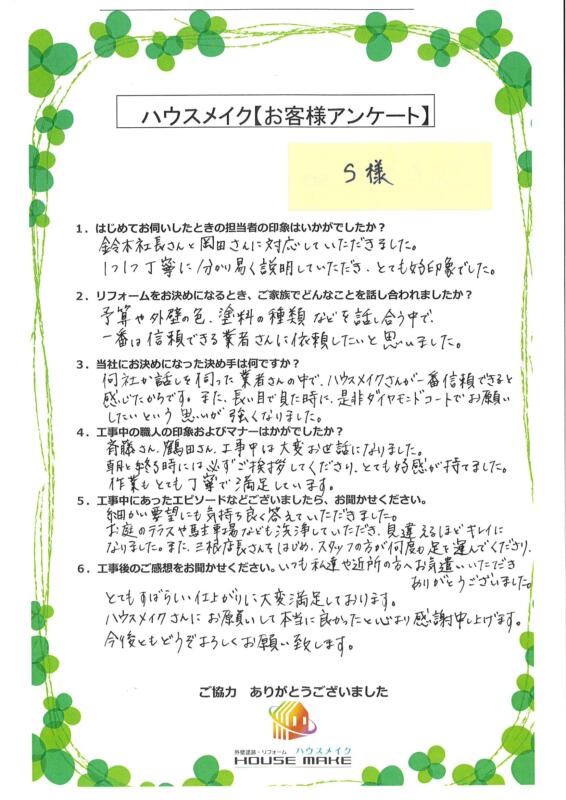 ハウスメイク【お客様アンケート】
S様
1．はじめてお伺いしたときの担当者の印象はいかがでしたか？
鈴木社長さんと岡田さんに対応していただきました。
1つ1つ丁寧に分かり易く説明していただき、とても好印象でした。
2．リフォームをお決めになるとき、ご家族でどんなことを話し合われましたか？
予算や外壁の色、塗料の種類などを話し合う中で、
一番は信頼できる業者さんに依頼したいと思いました。
3．当社にお決めになった決め手は何ですか？
何社か話しを伺った業者さんの中で、ハウスメイクさんが一番信頼できると
感じたからです。また、長い目で見た時に、是非ダイヤモンドコートでお願い
したいという思いが強くなりました。
4．工事中の職人の印象およびマナーはかがでしたか？
斉藤さん、鶴田さん、工事中は大変お世話になりました。
朝と終る時には必ずご挨拶してくださり、とても好感が持てました。
作業もとても丁寧で満足しています。
5．工事中にあったエピソードなどございましたら、お聞かせください。
細かい要望にも気持ち良く答えていただきました。
お庭のテラスや駐車場なども洗浄していただき、見違えるほどキレイに
なりました。また、三根店長さんをはじめ、スタッフの方が何度も足を運んでくださり、
6．工事後のご感想をお聞かせください。いつも私達や近所の方へお気遣いいただき
ありがとうございました。
とてもすばらしい仕上がりに大変満足しております。
ハウスメイクさんにお願いして本当に良かったと心より感謝申し上げます。
今後ともどうぞよろしくお願い致します。
ご協力　ありがとうございました
外壁塗装・リフォーム　ハウスメイク
HOUSE MAKE